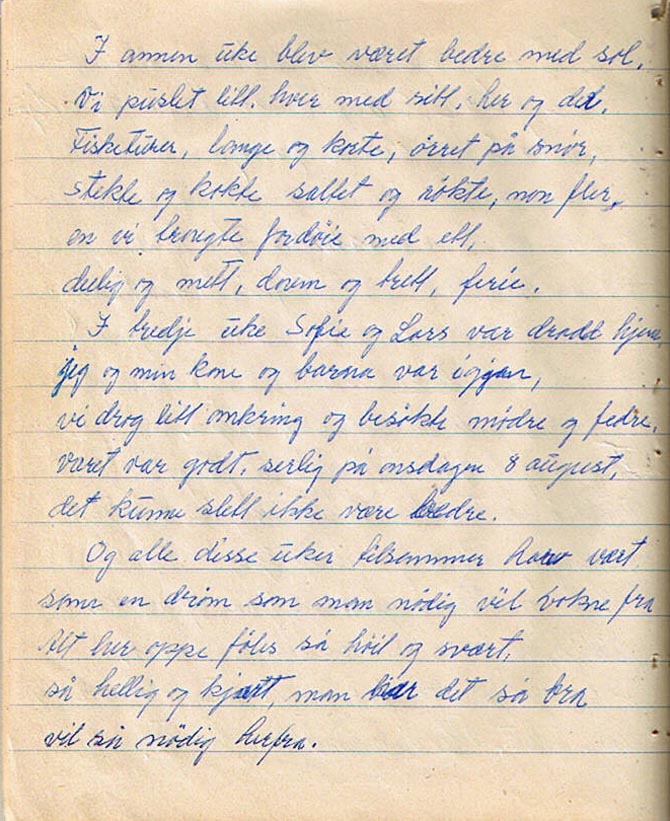 I annen uke blev været bedre med sol.
Vi puslet litt. hver med sitt, her og det.
Fisketurer, lange og korte, ørret på snør,
stekte og kokte saltet og røkte, non fler,
en vi trougte fordøie med ett,
deilig og mett, doven og trett, ferie.
I tredje uke Sofie og Lars var dradd hjem,
jeg og min kone og barna var iggen,
vi drog litt omkring og besøkte mødre og fedre.
været var godt. serlig på onsdagen 8 august,
det kunne slett ikke være bedre.
Og alle disse uker tilsammer har vært
som en drøm som man nødig vil vokne fra
Alt her oppe føles så høit og svært,
så hellig og kjært, man har det så bra
vil så nødig herfra.